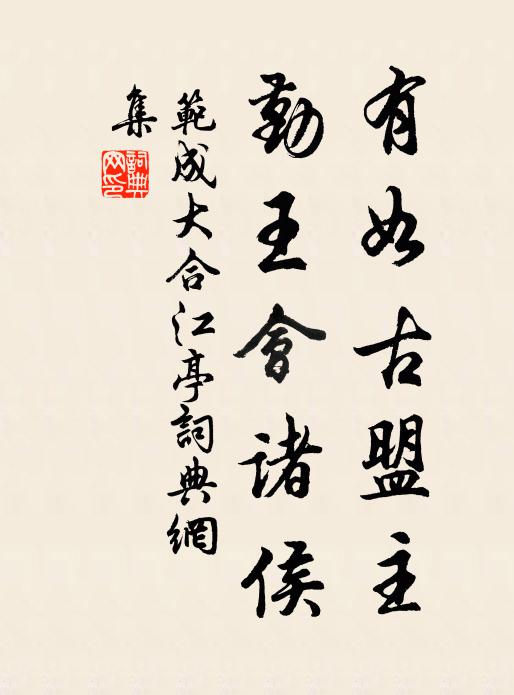 有如古盟主
勤王會诸侯
範成大合江亭詞典網
集
詞典
网印